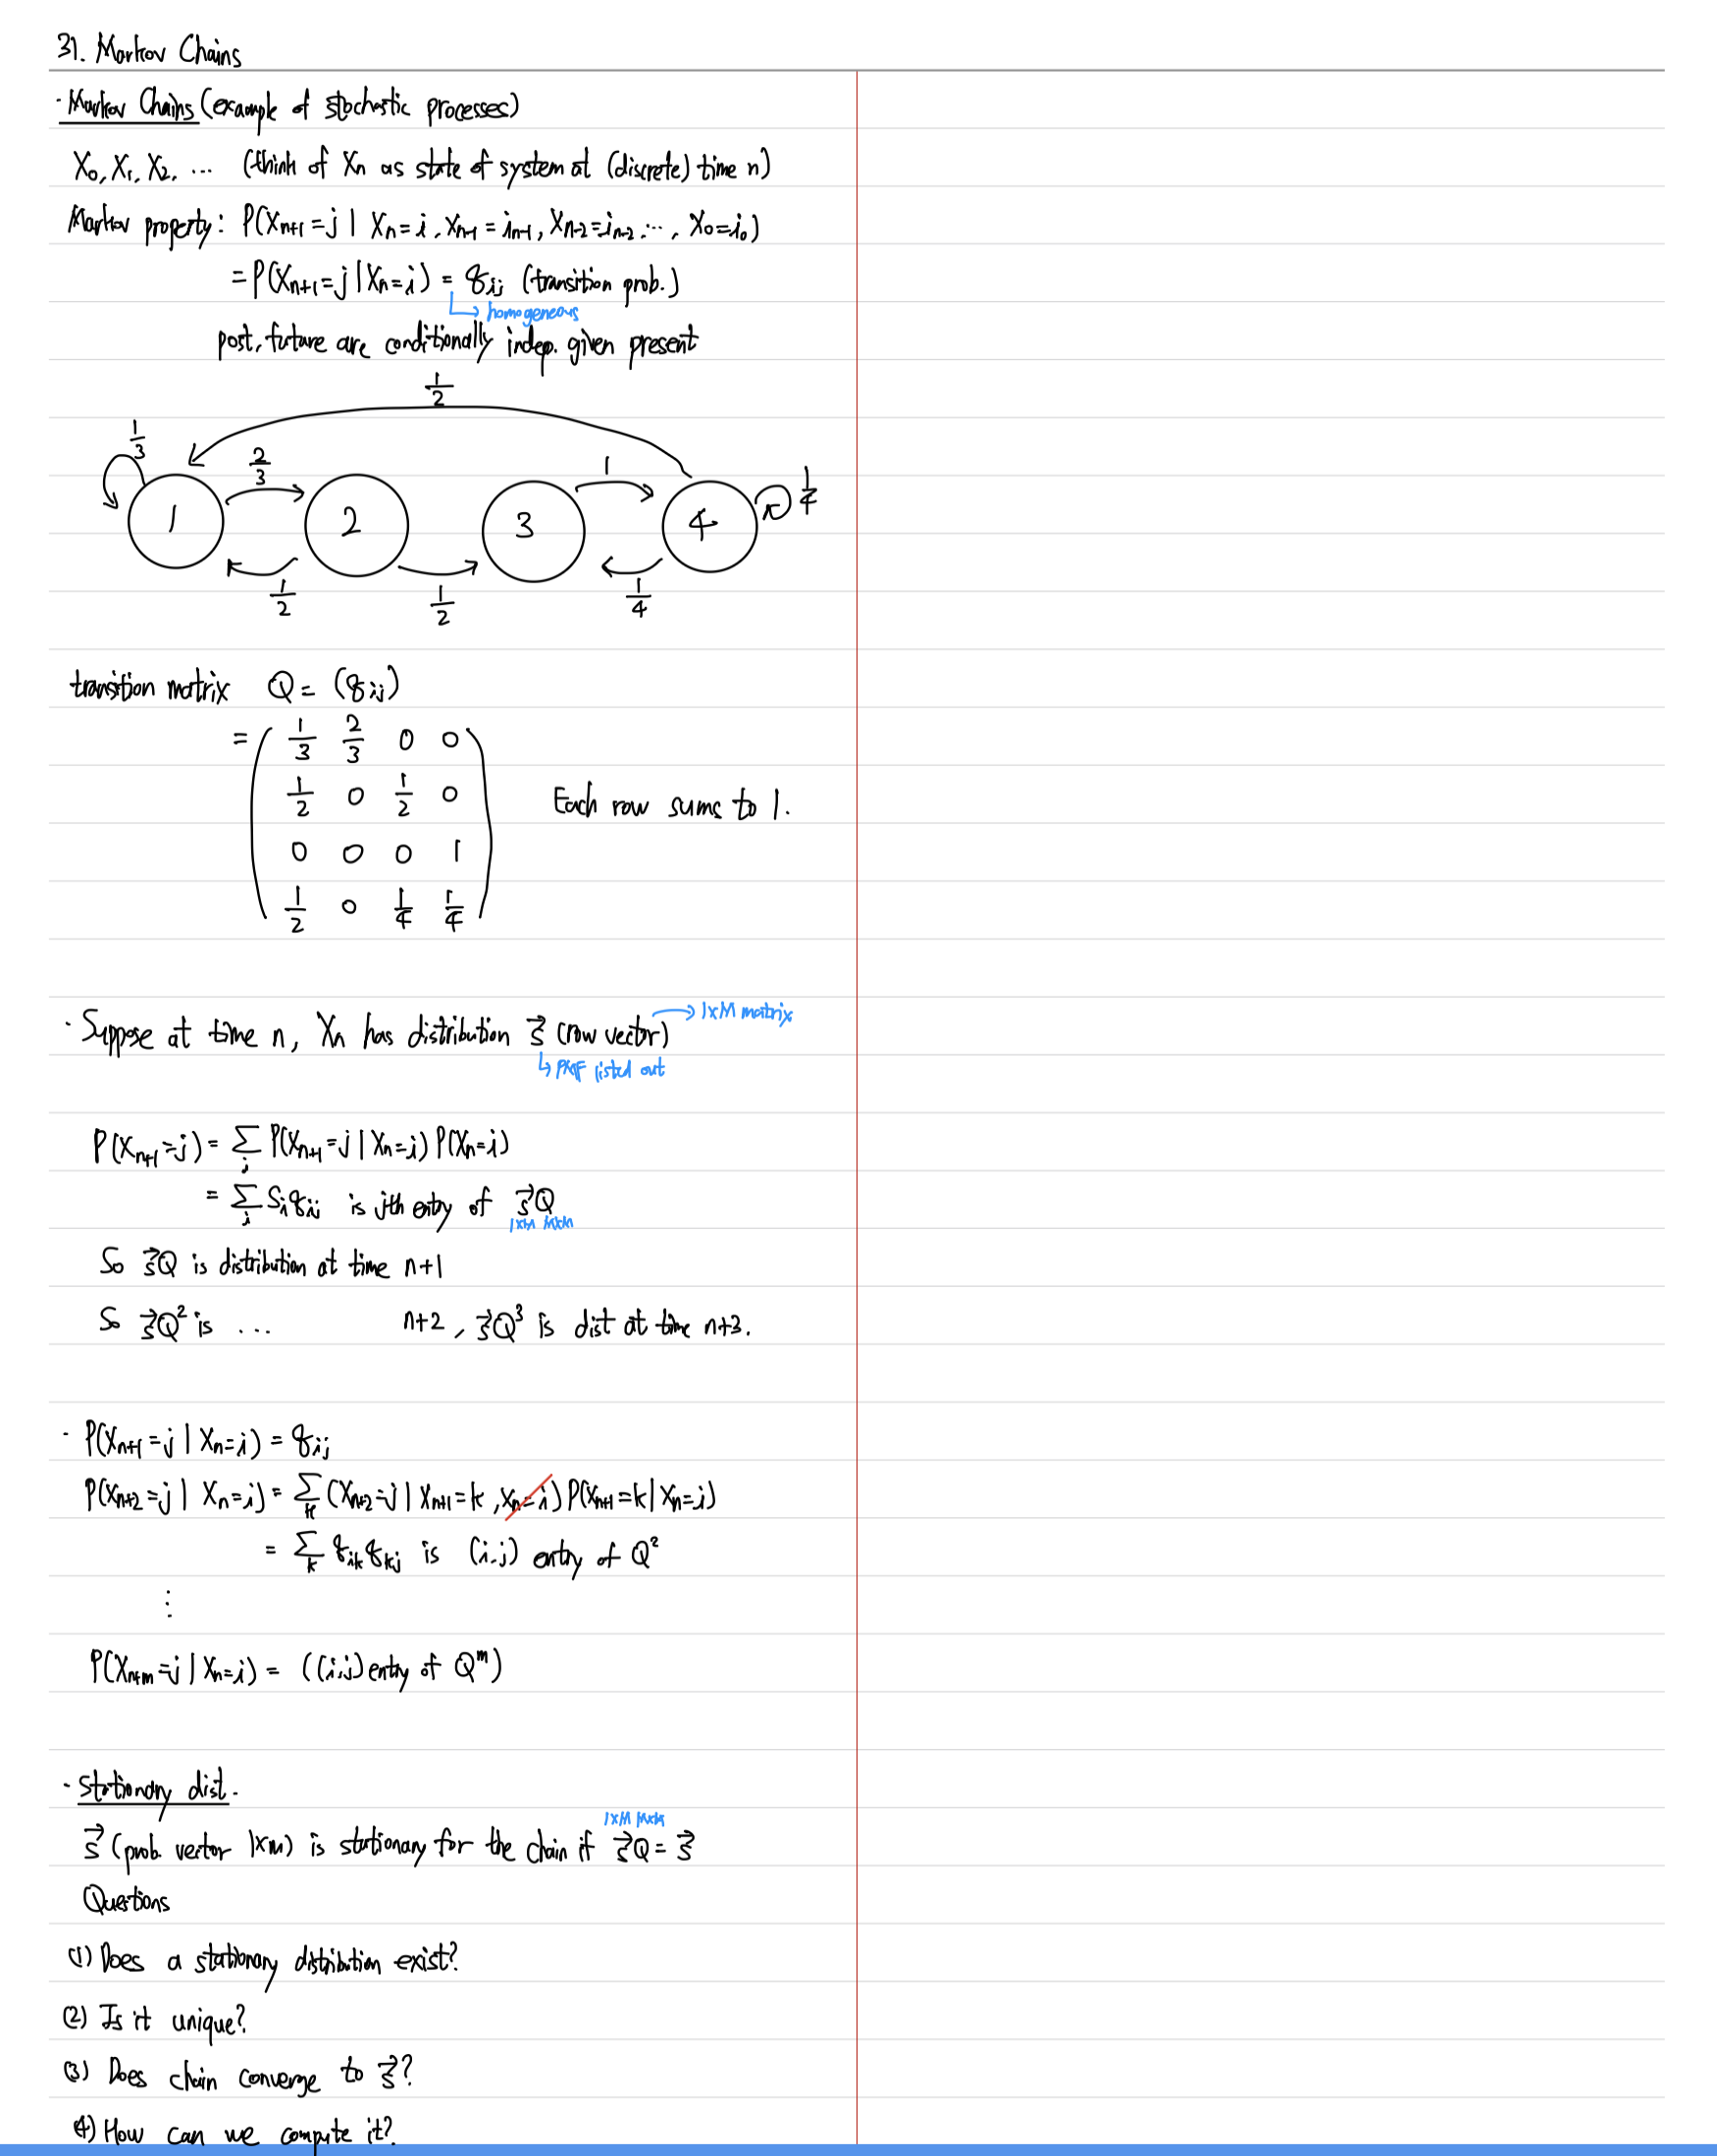 31. Markov Chains
· Markov Chains (example of stochastic processes)
X₀, X₁, X₂, ... (think of Xn as state of system at (discrete) time n)
Markov property: P(Xn+1 = j | Xn = i, Xn-1 = in-1, Xn-2 = in-2, ..., X₀ = i₀)
= P(Xn+1 = j | Xn = i) = qij (transition prob.)
↳ homogeneous
past, future are conditionally indep. given present
1/2
1/3 2/3 1 1/4
1 2 3 4
1/2 1/2 1/4
transition matrix Q = (qij)
= ( 1/3 2/3 0 0
1/2 0 1/2 0 Each row sums to 1.
0 0 0 1
1/2 0 1/4 1/4 )
· Suppose at time n, Xn has distribution s⃗ (row vector) → 1×M matrix
↳ PMF listed out
P(Xn+1 = j) = Σi P(Xn+1 = j | Xn = i) P(Xn = i)
= Σi si qij is jth entry of s⃗Q
1×M M×M
So s⃗Q is distribution at time n+1
So s⃗Q² is ... n+2, s⃗Q³ is dist at time n+3.
· P(Xn+1 = j | Xn = i) = qij
P(Xn+2 = j | Xn = i) = Σk (Xn+2 = j | Xn+1 = k, Xn = i) P(Xn+1 = k | Xn = i)
= Σk qik qkj is (i,j) entry of Q²
⋮
P(Xn+m = j | Xn = i) = ((i,j) entry of Qᵐ)
· Stationary dist.
1×M M×M
s⃗ (prob. vector 1×M) is stationary for the chain if s⃗Q = s⃗
Questions
(1) Does a stationary distribution exist?
(2) Is it unique?
(3) Does chain converge to s⃗?
(4) How can we compute it?